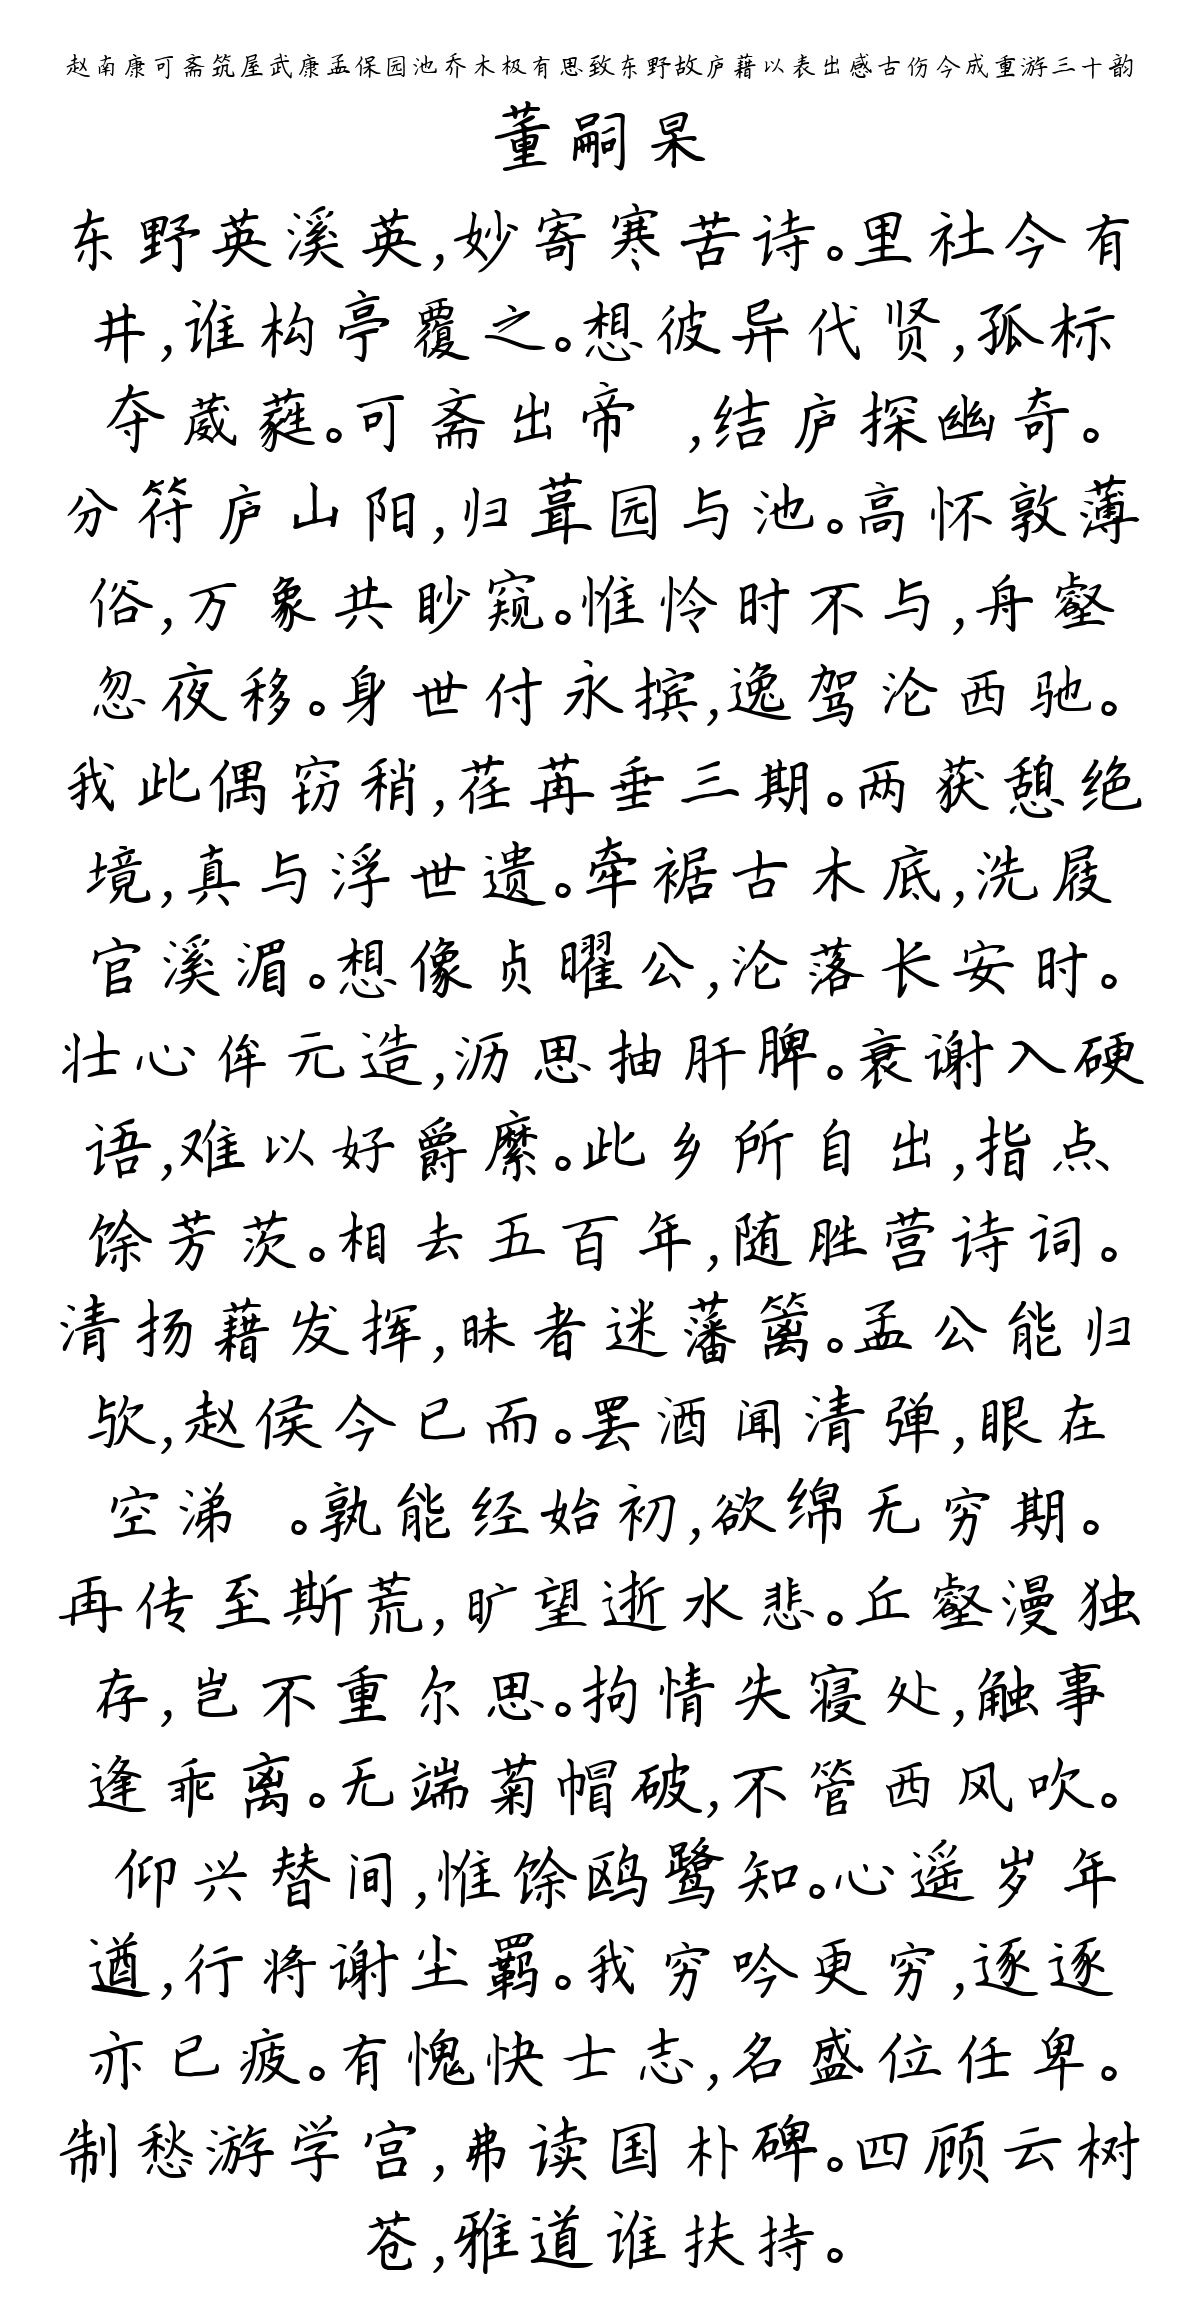 赵南康可斋筑屋武康孟保园池乔木极有思致东野故庐藉以表出感古伤今成重游三十韵
董嗣杲
东野英溪英,妙寄寒苦诗。里社今有
井,谁构亭覆之。想彼异代贤,孤标
夺葳蕤。可斋出帝 ,结庐探幽奇。
分符庐山阳,归葺园与池。高怀敦薄
俗,万象共眇窥。惟怜时不与,舟壑
忽夜移。身世付永摈,逸驾沦西驰。
我此偶窃稍,荏苒垂三期。两获憩绝
境,真与浮世遗。牵裾古木底,洗屐
官溪湄。想像贞曜公,沦落长安时。
壮心侔元造,沥思抽肝脾。衰谢入硬
语,难以好爵縻。此乡所自出,指点
馀芳茨。相去五百年,随胜营诗词。
清扬藉发挥,昧者迷藩篱。孟公能归
欤,赵侯今已而。罢酒闻清弹,眼在
空涕 。孰能经始初,欲绵无穷期。
再传至斯荒,旷望逝水悲。丘壑漫独
存,岂不重尔思。拘情失寝处,触事
逢乖离。无端菊帽破,不管西风吹。
仰兴替间,惟馀鸥鹭知。心遥岁年
遒,行将谢尘羁。我穷吟更穷,逐逐
亦已疲。有愧快士志,名盛位任卑。
制愁游学宫,弗读国朴碑。四顾云树
苍,雅道谁扶持。